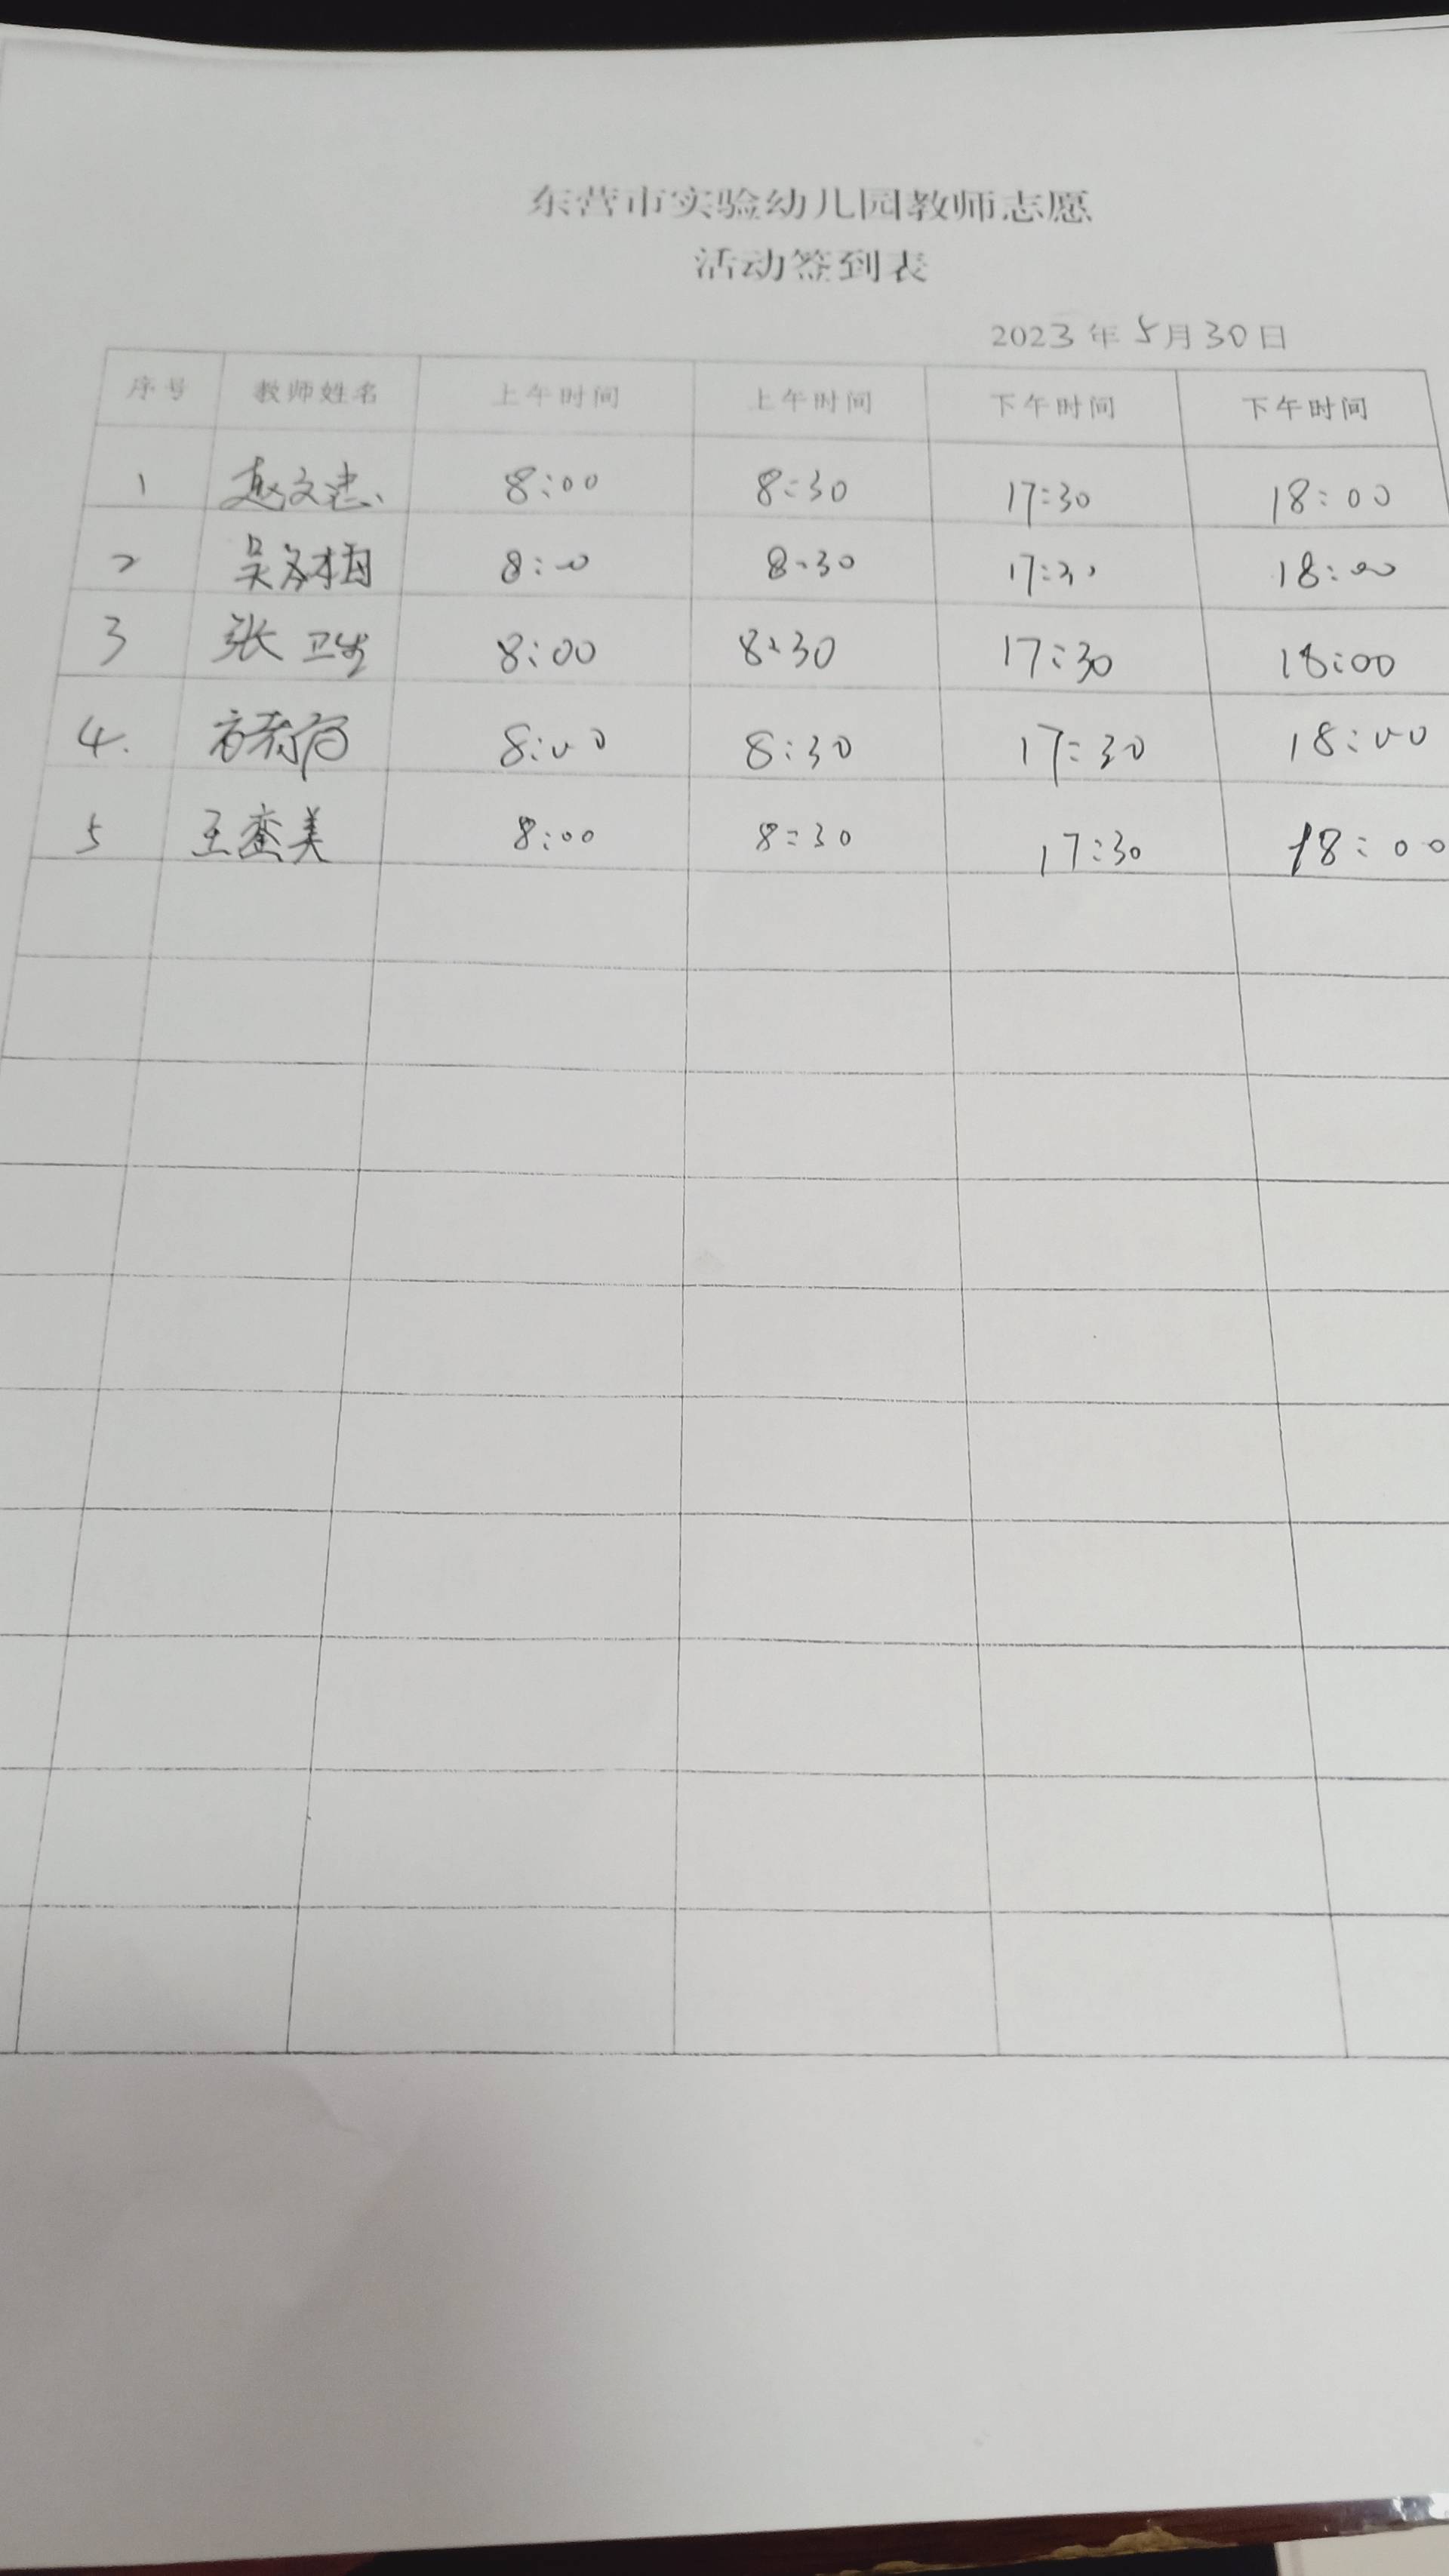 东营市实验幼儿园教师志愿
活动签到表
2023年5月30日
序号 教师姓名 上午时间 上午时间 下午时间 下午时间
1 赵文忠 8:00 8:30 17:30 18:00
2 吴冬梅 8:00 8:30 17:30 18:00
3 张卫 8:00 8:30 17:30 18:00
4. 8:00 8:30 17:30 18:00
5 王奎美 8:00 8:30 17:30 18:00